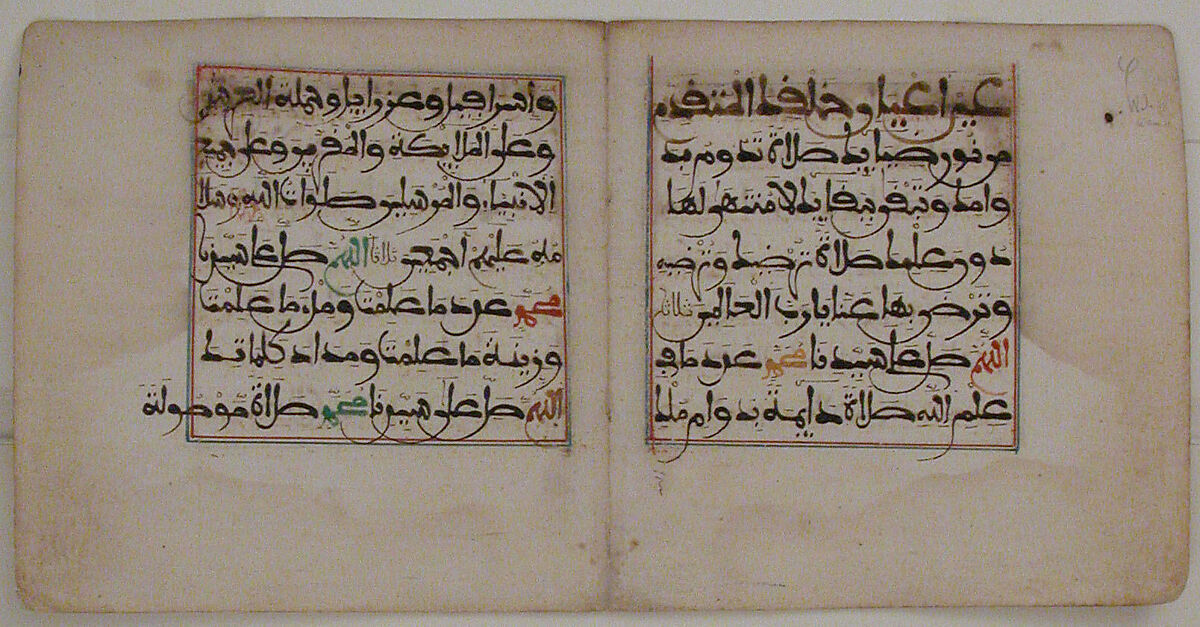 عين اعيان خلقك المتقدم
من نور ضيايك صلاة تدوم بد
وامك وتبقى ببقايك لا منتهى لها
دون علمك صلاة ترضيك وترضيه
وترضى بها عنا يا رب العالمين ثلاثا
اللهم صل على سيدنا محمد عدد ما في
علم الله صلاة دايمة بدوام ملك
واسرافيل وعزرايل وحملة العرش
وعلى الملايكة والمقربين وعلى جميع
الانبياء والمرسلين صلوات الله وسلا
مه عليهم اجمعين ثلاثا اللهم صل على سيدنا
محمد عدد ما علمت وملء ما علمت
وزنة ما علمت ومداد كلماتك
اللهم صل على سيدنا محمد صلاة موصولة